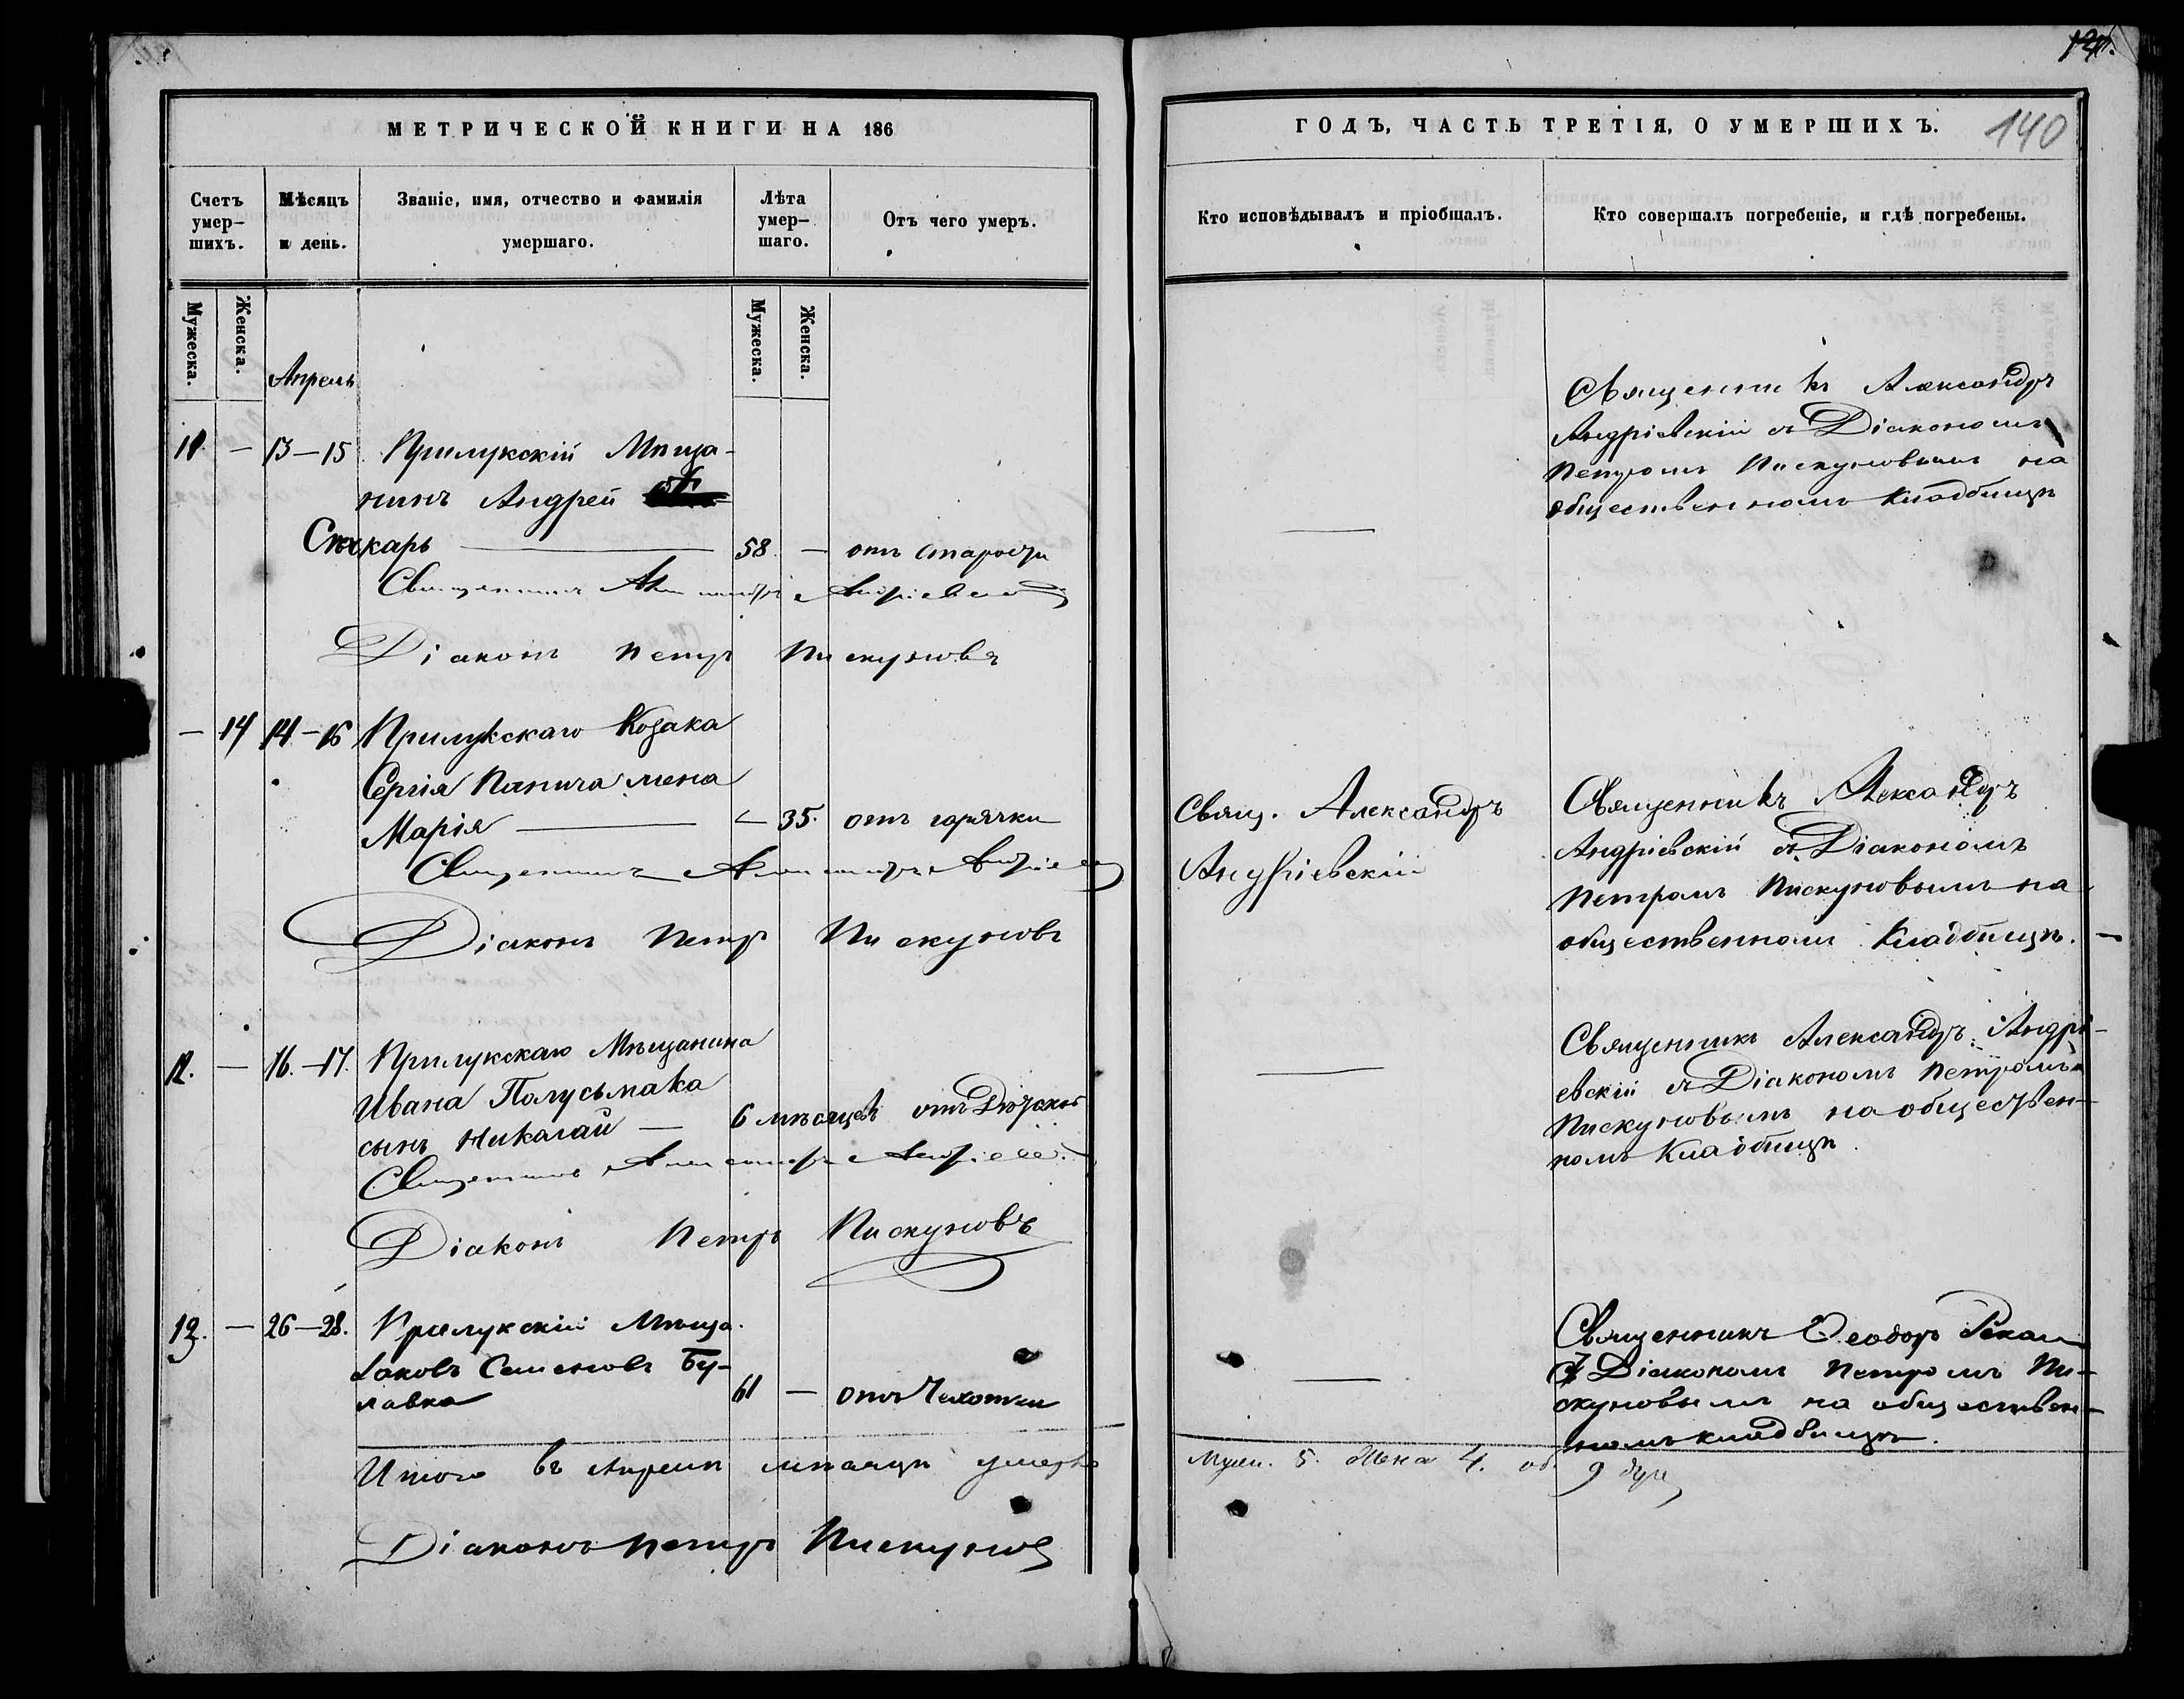 МЕТРИЧЕСКОЙ КНИГИ НА 186
Счетъ умер-шихъ.
Мѣсяцъ и день.
Званіе, имя, отчество и фамилія умершаго.
Лѣта умер-шаго.
Отъ чего умеръ.
Мужеска.
Женска.
Мужеска.
Женска.
Апрель
11 — 13—15 Прилукскій Мѣща-
нинъ Андрей
карь — 58. — отъ старости
Священникъ Александръ Андріевскій
Діаконъ Петръ Пискуновъ
— 14 14—16 Прилукскаго Козака
Сергія Панича жена
Марія — — 35. отъ горячки
Священникъ Александръ Андріевскій
Діаконъ Петръ Пискуновъ
12. — 16.—17. Прилукскаго Мѣщанина
Ивана Полусьмака
сынъ Николай — 6 мѣсяцевъ отъ
Священникъ Александръ Андріевскій
Діаконъ Петръ Пискуновъ
13. — 26—28. Прилукскій Мѣща.
Іаковъ Семеновъ Бу-
лавка 61 — отъ Чахотки
Итого въ Апрелѣ мѣсяцѣ умерло
Діаконъ Петръ Пискуновъ
140
ГОДЪ, ЧАСТЬ ТРЕТІЯ, О УМЕРШИХЪ.
Кто исповѣдывалъ и пріобщалъ.
Кто совершалъ погребеніе, и гдѣ погребены.
Священникъ Александръ
Андріевскій съ Діакономъ
Петромъ Пискуновымъ на
общественномъ кладбищѣ
Свящ. Александръ
Андріевскій
Священникъ Александръ
Андріевскій съ Діакономъ
Петромъ Пискуновымъ на
общественномъ Кладбищѣ.
Священникъ Александръ Андрі-
евскій съ Діакономъ Петромъ
Пискуновымъ на обществен-
номъ Кладбищѣ.
Священникъ Ѳеодоръ
съ Діакономъ Петромъ Пи-
скуновымъ на обществен-
номъ кладбищѣ.
Муж. 5. Жена 4. об. 9 душ